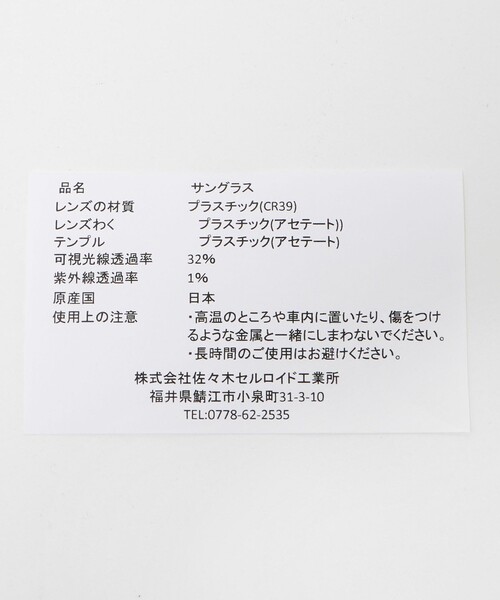 品名 サングラス
レンズの材質 プラスチック(CR39)
レンズわく プラスチック(アセテート))
テンプル プラスチック(アセテート)
可視光線透過率 32%
紫外線透過率 1%
原産国 日本
使用上の注意 ・高温のところや車内に置いたり、傷をつけ
るような金属と一緒にしまわないでください。
・長時間のご使用はお避けください。
株式会社佐々木セルロイド工業所
福井県鯖江市小泉町31-3-10
TEL:0778-62-2535